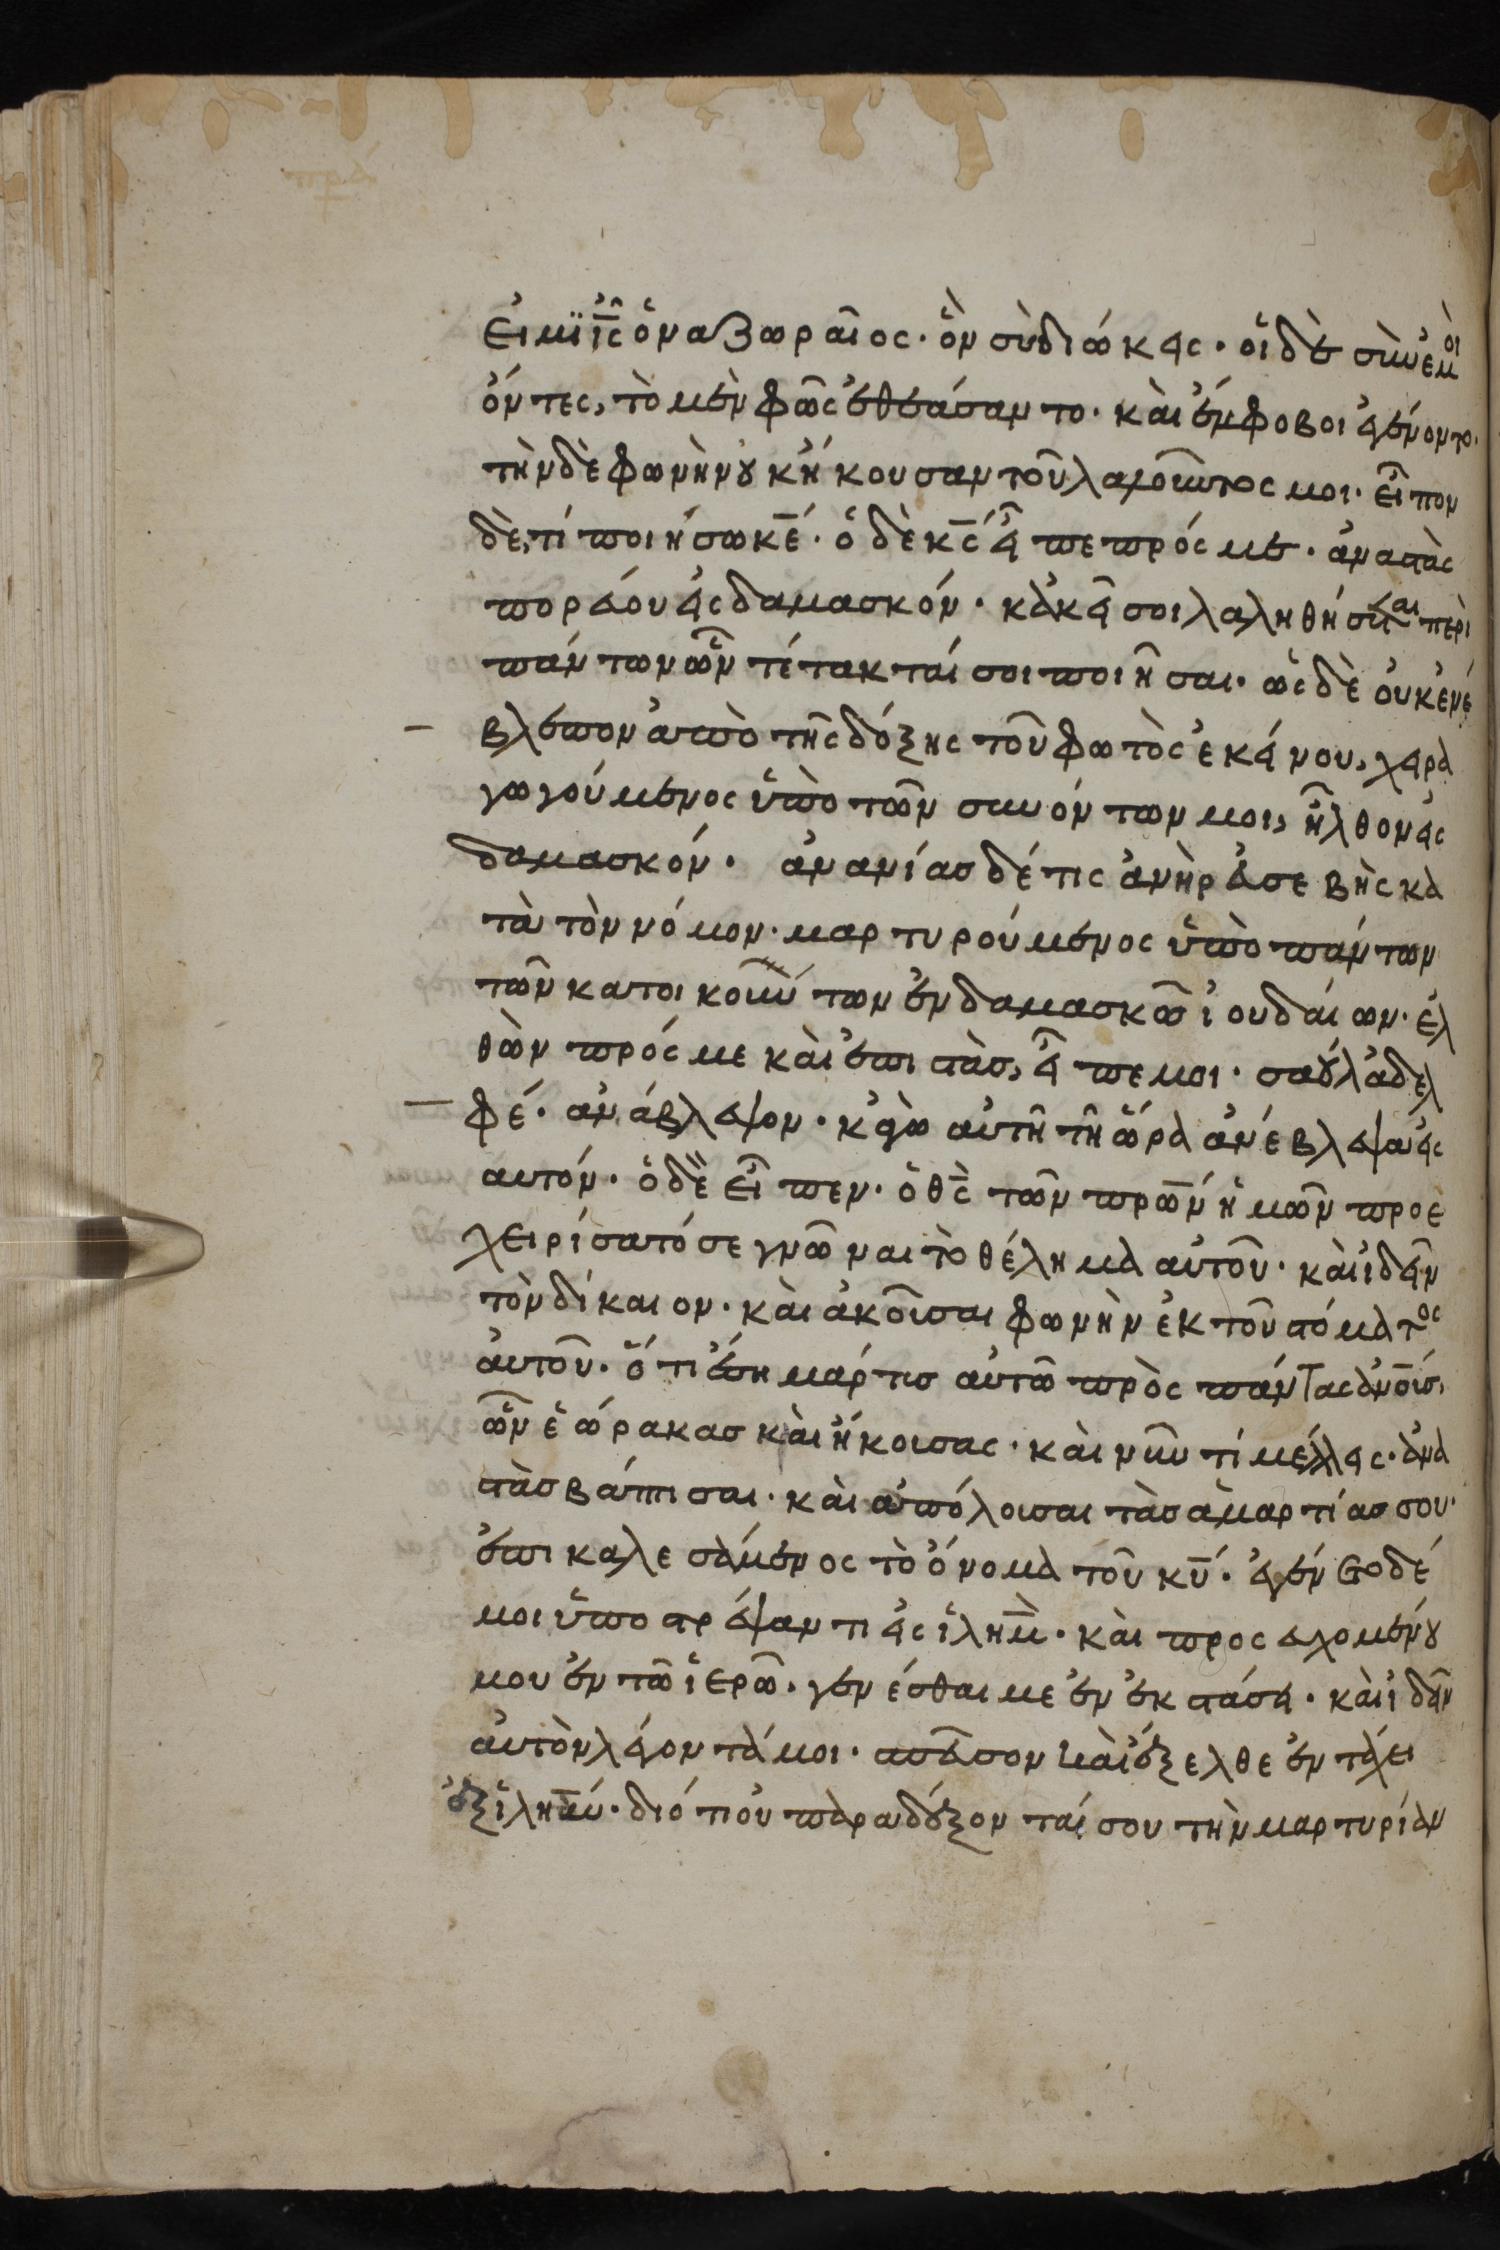 εἰμϊ ἰ̅ς̅ ὁ ναζωραῖος· ὃν σὺ διώκεις· οἱ δὲ σὺν ἐμοὶ
ὄντες, τὸ μὲν φῶς ἐθεάσαντο· καὶ ἔμφοβοι ἐγένοντο·
τὴν δὲ φωνὴν οὐκ ἤκουσαν τοῦ λαλοῦντος μοι· εἶπον
δὲ, τί ποιήσω κ̅ε̅· ὁ δὲ κ̅ς̅ εἶπε πρός με· ἀναστὰς
πορεύου εἰς δαμασκόν· κἀκεῖ σοι λαληθήσεται περὶ
πάντων ὧν τέτακταί σοι ποιῆσαι· ὡς δὲ οὐκ ἐνέ
βλεπον ἀπὸ τῆς δόξης τοῦ φωτὸς ἐκείνου, χειρα
γωγούμενος ὑπὸ τῶν συνόντων μοι, ἦλθον εἰς
δαμασκόν· ἀνανίας δέ τις ἀνὴρ εὐσεβὴς κα
τὰ τὸν νόμον· μαρτυρούμενος ὑπὸ πάντων
τῶν κατοικούντων ἐν δαμασκῶ ἰουδαίων· ἐλ
θὼν πρός με καὶ ἐπιστὰς, εἶπε μοι· σαοὺλ ἀδελ
φέ· ἀνάβλεψον· κἀγὼ αὐτῆ τῆ ὥρα ἀνέβλεψα εἰς
αυτόν· ὁ δὲ εἶπεν· ὁ θ̅ς̅ τῶν πρ̅ων ἡμῶν προε
χειρίσατό σε γνῶναι τὸ θέλημα αὐτοῦ· καὶ ἰδεῖν
τὸν δίκαιον· καὶ ἀκοῦσαι φωνὴν ἐκ τοῦ στόματος
αὐτοῦ· ὅτι ἔση μάρτυς αὐτῶ πρὸς πάντας ἀν̅ο̅υ̅ς̅,
ὧν ἑώρακας καὶ ἤκουσας· καὶ νῦν τί μέλλεις· ἀνα
στὰς βάπτισαι· καὶ ἀπόλουσαι τὰς ἁμαρτίας σου·
ἐπικαλεσάμενος τὸ ὄνομα τοῦ κ̅υ̅· ἐγένετο δέ
μοι ὑποστρέψαντι εἰς ἱλη̅μ̅· καὶ προσευχομένου
μου ἐν τῶ ἱερῶ· γενέσθαι με ἐν ἐκστάσει· καὶ ἰδεῖν
αὐτὸν λέγοντά μοι· σπεῦσον καὶ ἔξελθε ἐν τάχει
ἐξ ἱλη̅μ̅· διότι οὐ παραδέξονταί σου τὴν μαρτυρίαν